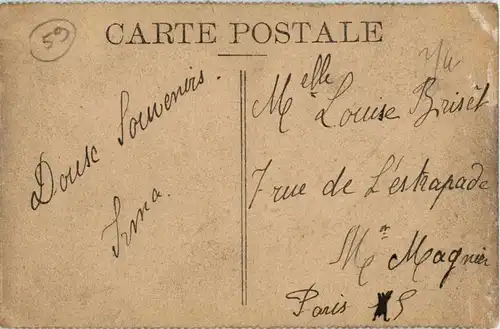 59
CARTE POSTALE
Douse Souvenirs.
Irma.
Melle Louise Briset
7 rue de L'estrapade
Mon Magnier
Paris 5